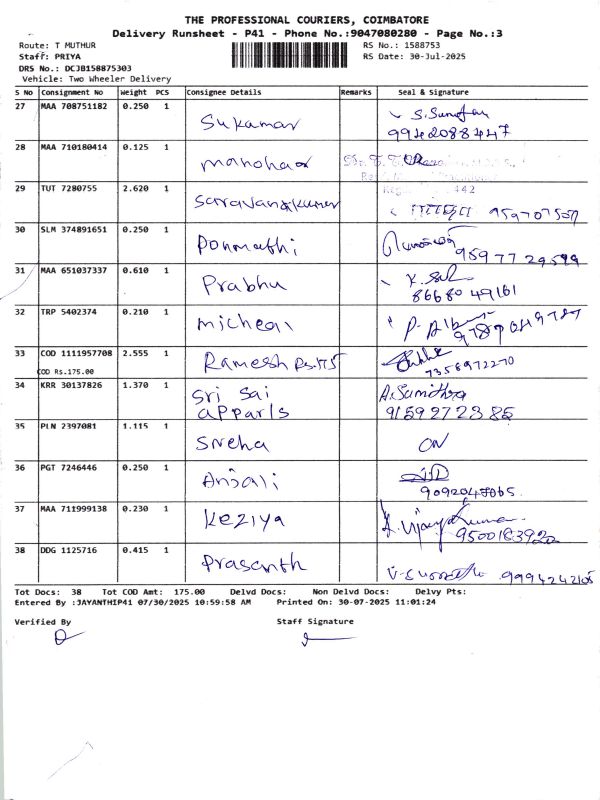 THE PROFESSIONAL COURIERS, COIMBATORE
Delivery Runsheet - P41 - Phone No.:9047080280 - Page No.:3
Route: T MUTHUR RS No.: 1588753
Staff: PRIYA RS Date: 30-Jul-2025
DRS No.: DCJB158875303
Vehicle: Two Wheeler Delivery
S No Consignment No Weight PCS Consignee Details Remarks Seal & Signature
27 MAA 708751182 0.250 1 Sukamar
9942088447
28 MAA 710180414 0.125 1 manohar
29 TUT 7280755 2.620 1 Saravanakumar
442
30 SLM 374891651 0.250 1 Ponmathi
95977 29599
31 MAA 651037337 0.610 1 Prabhu
86680 49161
32 TRP 5402374 0.210 1 micheal
33 COD 1111957708 2.555 1 Ramesh Rs.175
COD Rs.175.00 7358972270
34 KRR 30137826 1.370 1 Sri Sai apparls A.Sumithra
9159272385
35 PLN 2397081 1.115 1 Sneha ON
36 PGT 7246446 0.250 1 Anjali
9092047065
37 MAA 711999138 0.230 1 Keziya
38 DDG 1125716 0.415 1 Prasanth
Tot Docs: 38 Tot COD Amt: 175.00 Delvd Docs: Non Delvd Docs: Delvy Pts:
Entered By :JAYANTHIP41 07/30/2025 10:59:58 AM Printed On: 30-07-2025 11:01:24
Verified By Staff Signature